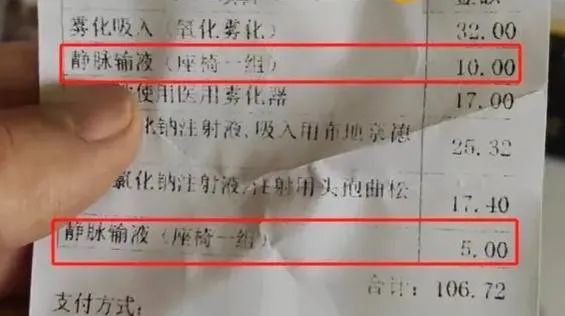 金额
雾化吸入(氧化雾化) 32.00
静脉输液(座椅一组) 10.00
使用医用雾化器 17.00
化钠注射液,吸入用布地奈德 25.32
氯化钠注射液,注射用头孢曲松 17.40
静脉输液(座椅一组) 5.00
合计: 106.72
支付方式: